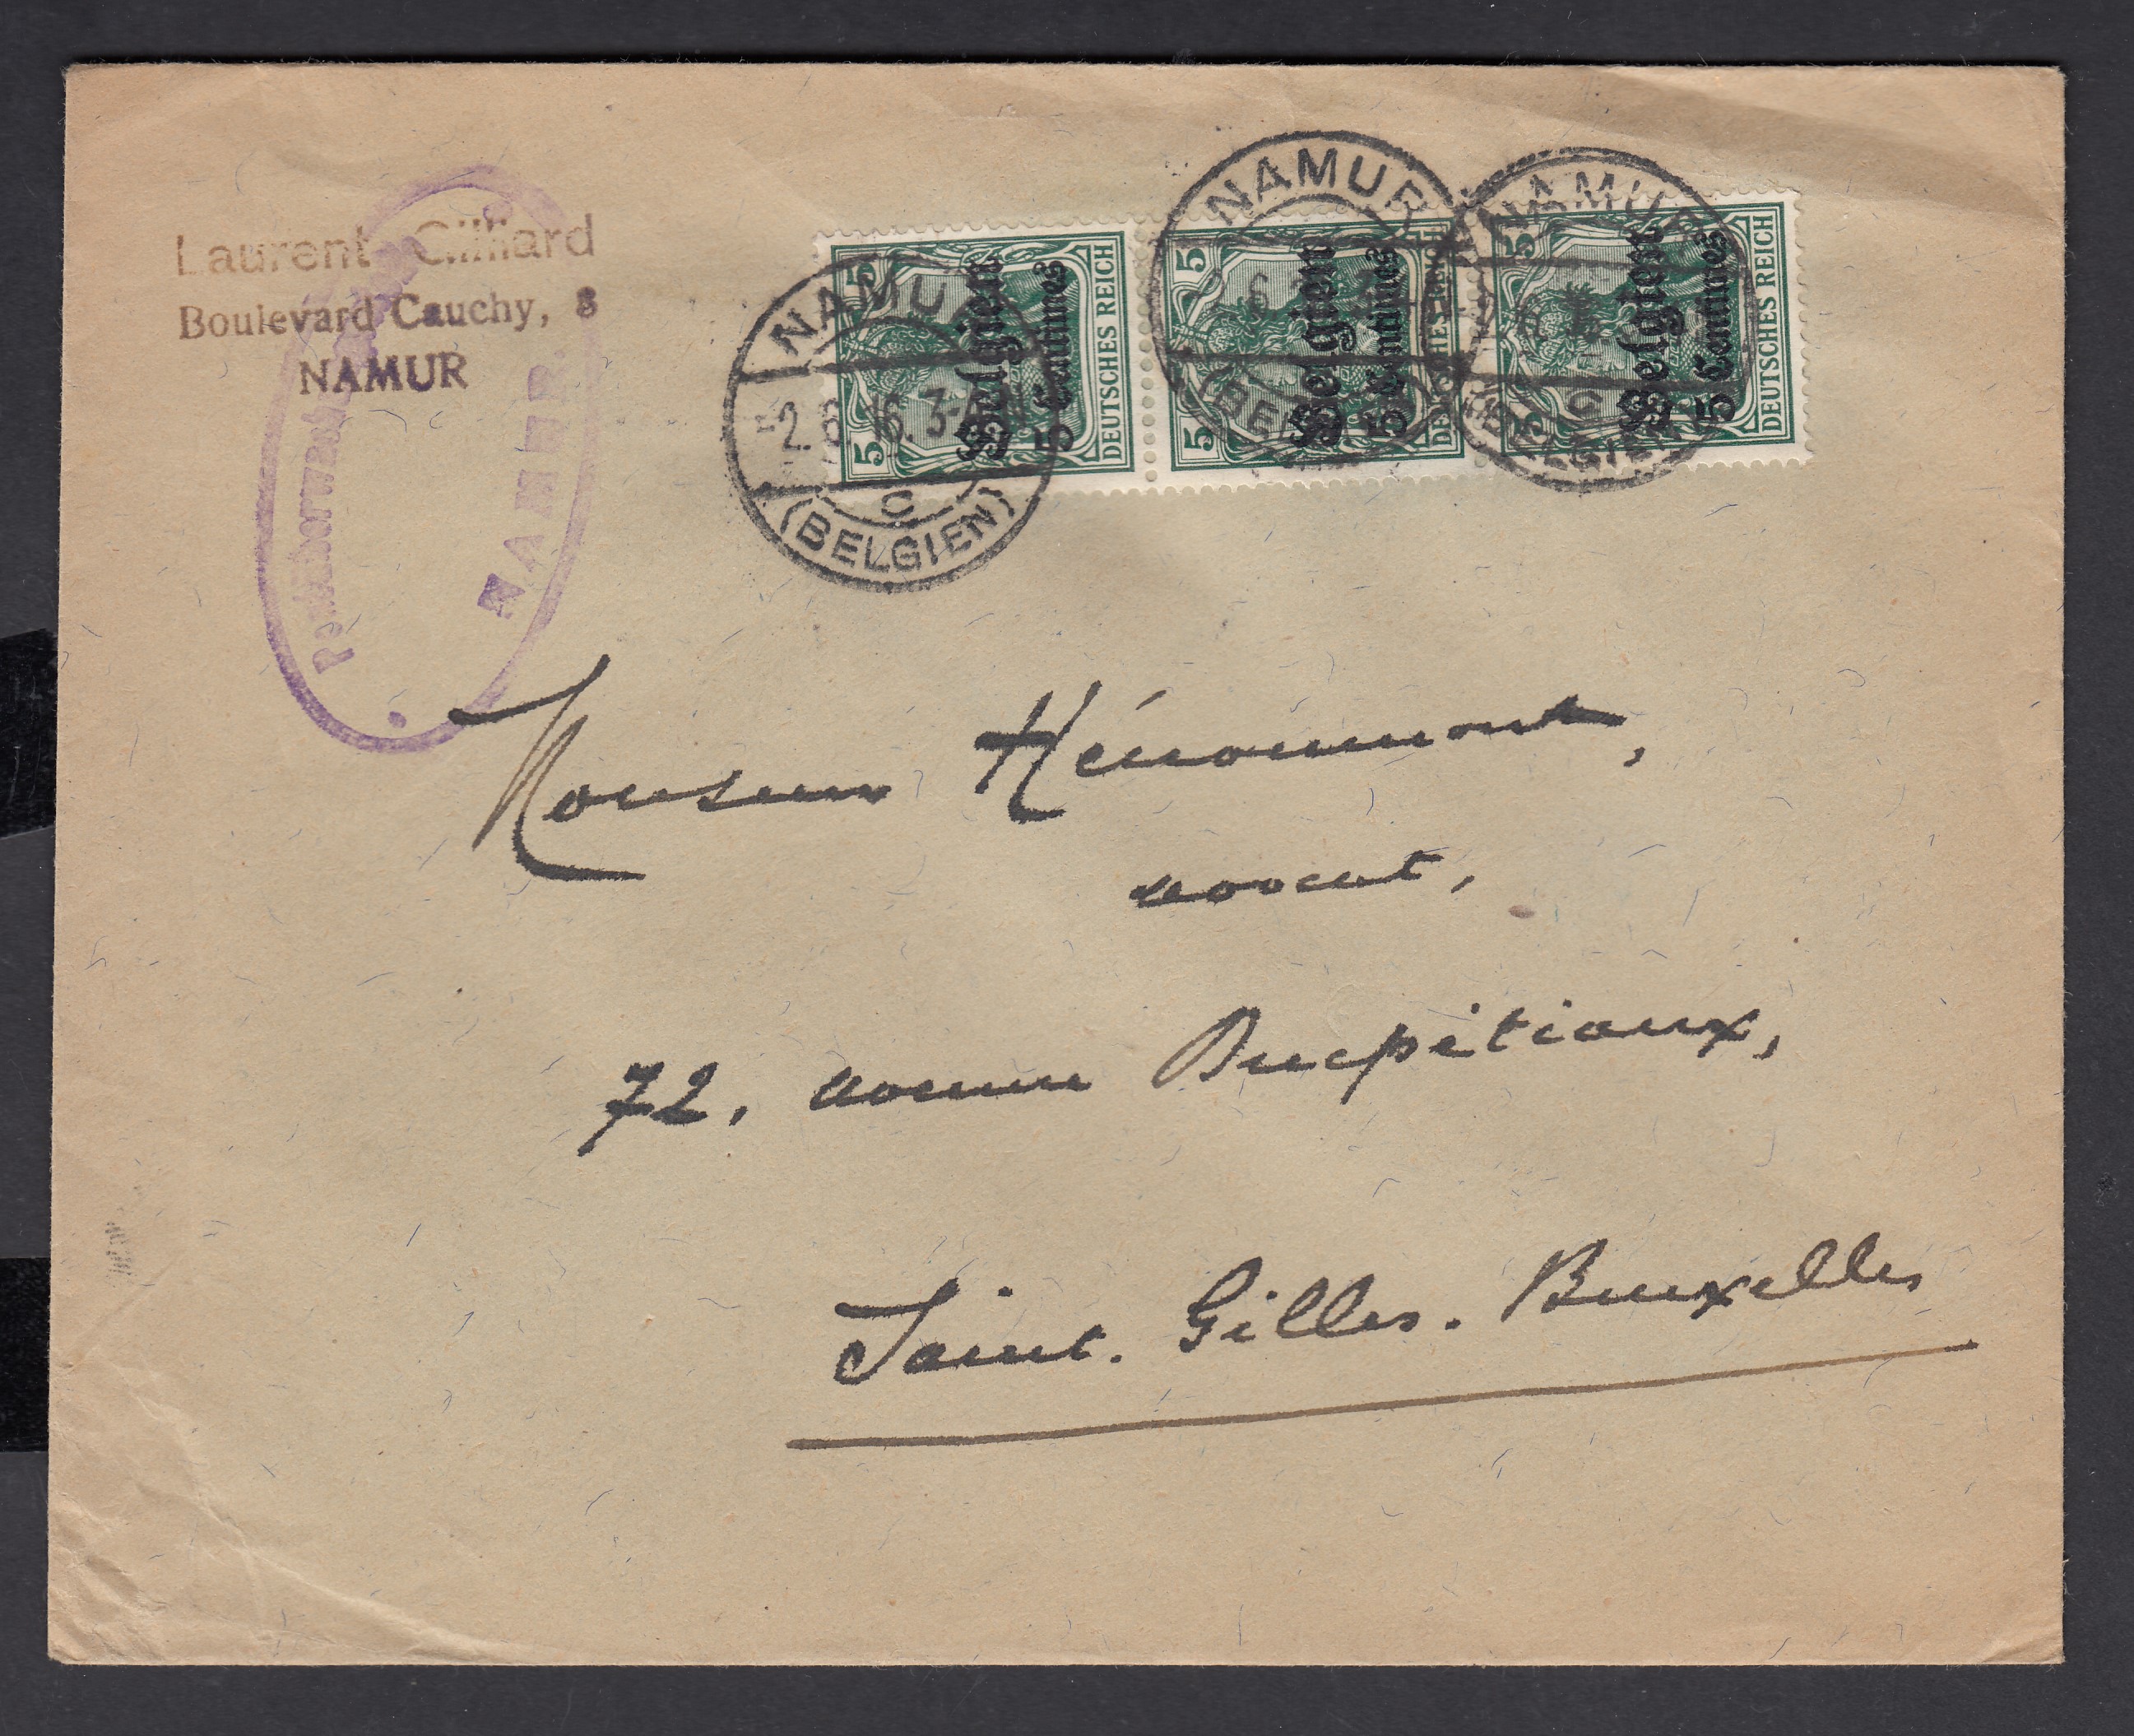 Laurent Gilliard
Boulevard Cauchy, 8
NAMUR
NAMUR.
5 5 DEUTSCHES REICH
Belgien
5 Centimes
5 5 DEUTSCHES REICH
Belgien
5 Centimes
5 5 DEUTSCHES REICH
Belgien
5 Centimes
NAMUR
2.6.16. 3-4N
c
(BELGIEN)
NAMUR
(BELGIEN)
NAMUR
c
(BELGIEN)
Monsieur Hénoumont,
avocat,
72, avenue Ducpétiaux,
Saint. Gilles. Bruxelles